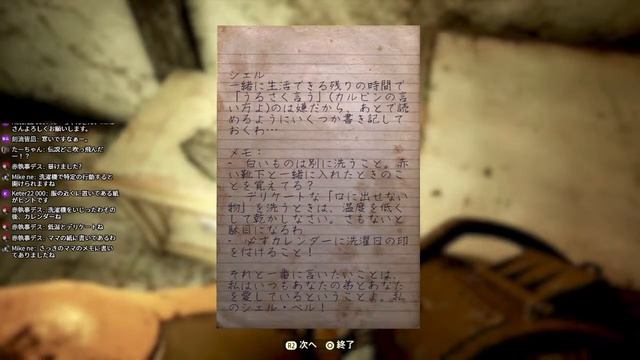 シェル
一緒に生活できる残りの時間で
「うるさく言う」(カルビンの言
い方よ)のは嫌だから、あとで読
めるようにいくつか書き記して
おくわ…
メモ:
- 白いものは別に洗うこと。赤
い靴下と一緒に入れたときのこ
とを覚えてる?
- デリケートな「口に出せない
物」を洗うときは、温度を低く
して乾かしなさい。さもないと
駄目になるわ
- 必ずカレンダーに洗濯日の印
を付けること!
それと一番に言いたいことは、
私はいつもあなたの弟とあなた
を愛しているということよ。私
のシェル・ベル!
さんよろしくお願いします。
刻流皆凪: 寒いですなぁー。
たーちゃん: 伝説どこ吹っ飛んだ
ー!?
赤執事デス: 開けました?
Mike ne: 洗濯機で特定の行動すると
開けられますね
Keter22 000: 服の近くに置いてある紙
がヒントです
赤執事デス: 洗濯機をいじったわその
後、カレンダーね
赤執事デス: 低温とデリケートね
赤執事デス: ママの紙に書いてあるわ
Mike ne: さっきのママのメモに書い
てありましたね
R2 次へ
終了